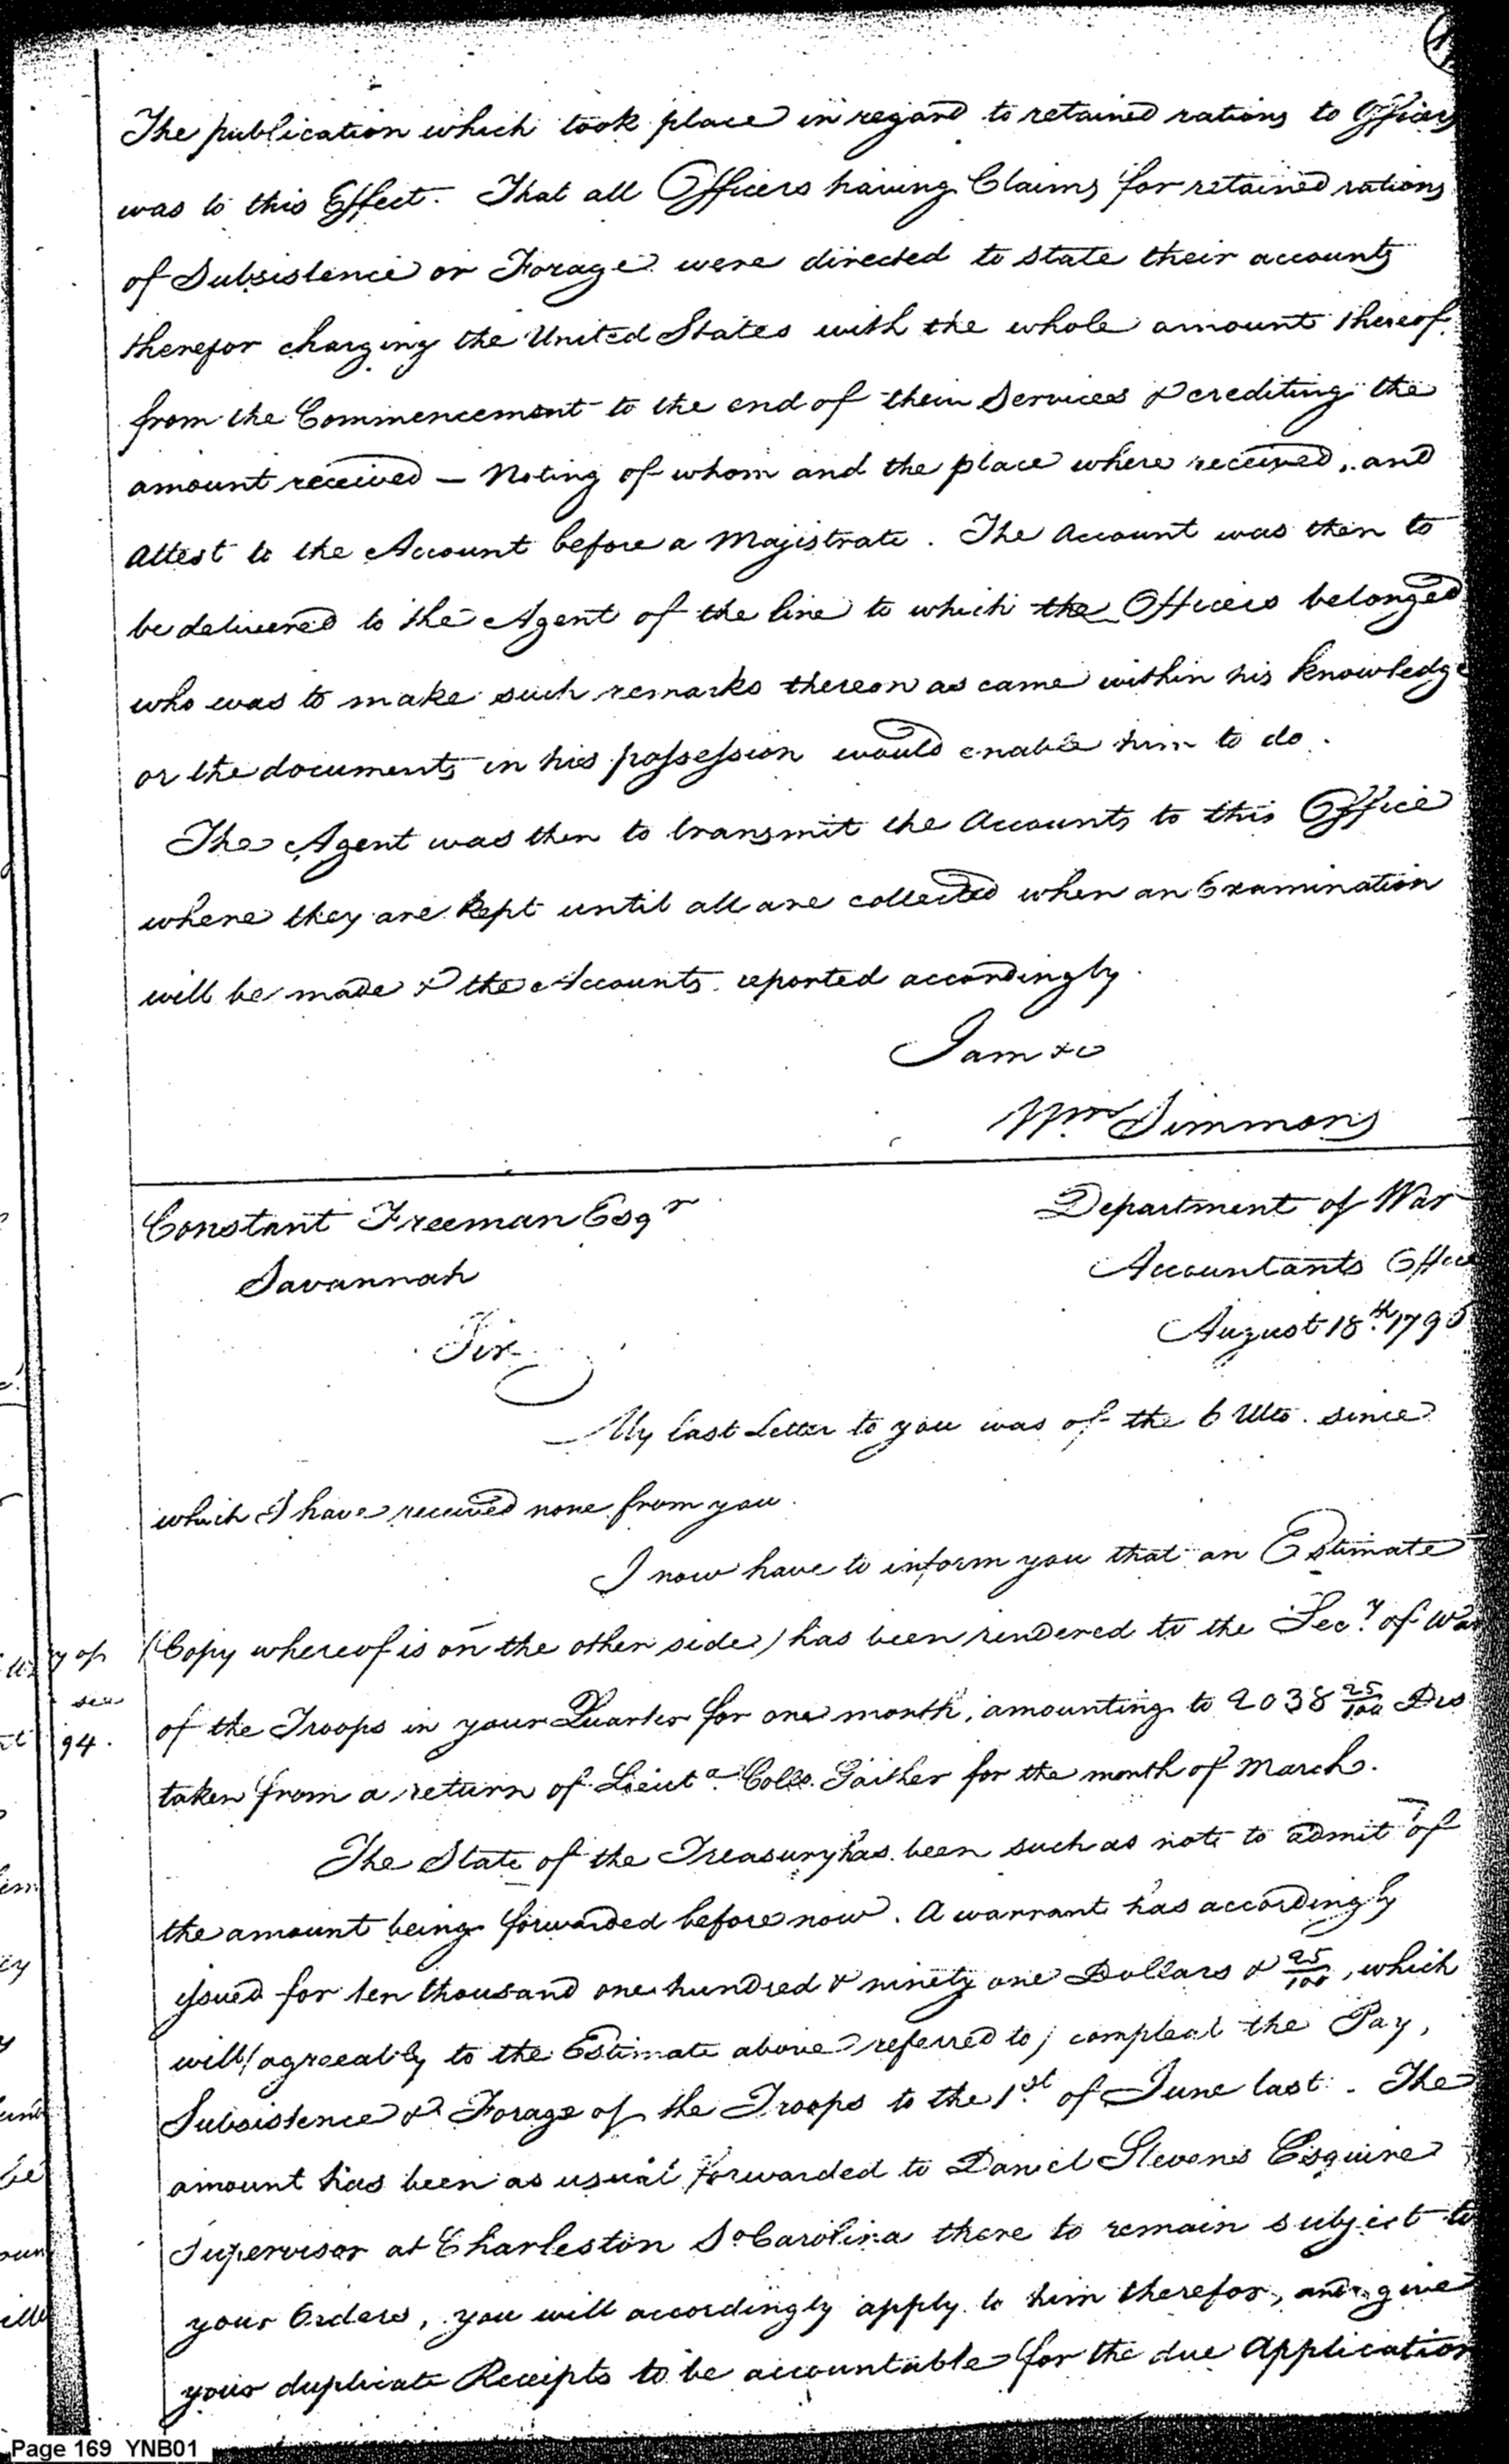 The publication which took place in regard to retained rations to Officers
was to this Effect. That all Officers having Claims for retained rations
of Subsistence or Forage were directed to state their accounts
therefor charging the United States with the whole amount thereof
from the Commencement to the end of their Services & crediting the
amount received — Noting of whom and the place where received, and
attest to the Account before a Majistrate. The Account was then to
be delivered to the Agent of the line to which the Officers belonged
who was to make such remarks thereon as came within his knowledge
or the documents in his possession would enable him to do.
The Agent was then to transmit the Accounts to this Office
where they are kept until all are collected when an Examination
will be made & the Accounts reported accordingly.
I am &c
Wm Simmons
Constant Freeman Esqr
Savannah
Department of War
Accountants Office
August 18th 1795
Sir
My last Letter to you was of the 6 Ulto. since
which I have received none from you.
I now have to inform you that an Estimate
(Copy whereof is on the other side) has been rendered to the Secy of War
of the Troops in your Quarter for one month, amounting to 2038 25/100 Drs
taken from a return of Lieut. Collo. Gaither for the month of March.
The State of the Treasury has been such as not to admit of
the amount being forwarded before now. A warrant has accordingly
issued for ten thousand one hundred & ninety one Dollars & 25/100, which
will (agreeably to the Estimate above referred to) compleat the Pay,
Subsistence & Forage of the Troops to the 1st of June last. The
amount has been as usual forwarded to Daniel Stevens Esquire
Supervisor at Charleston So Carolina there to remain subject to
your Orders, you will accordingly apply to him therefor, and give
your duplicate Receipts to be accountable for the due Application
94.
Page 169 YNB01